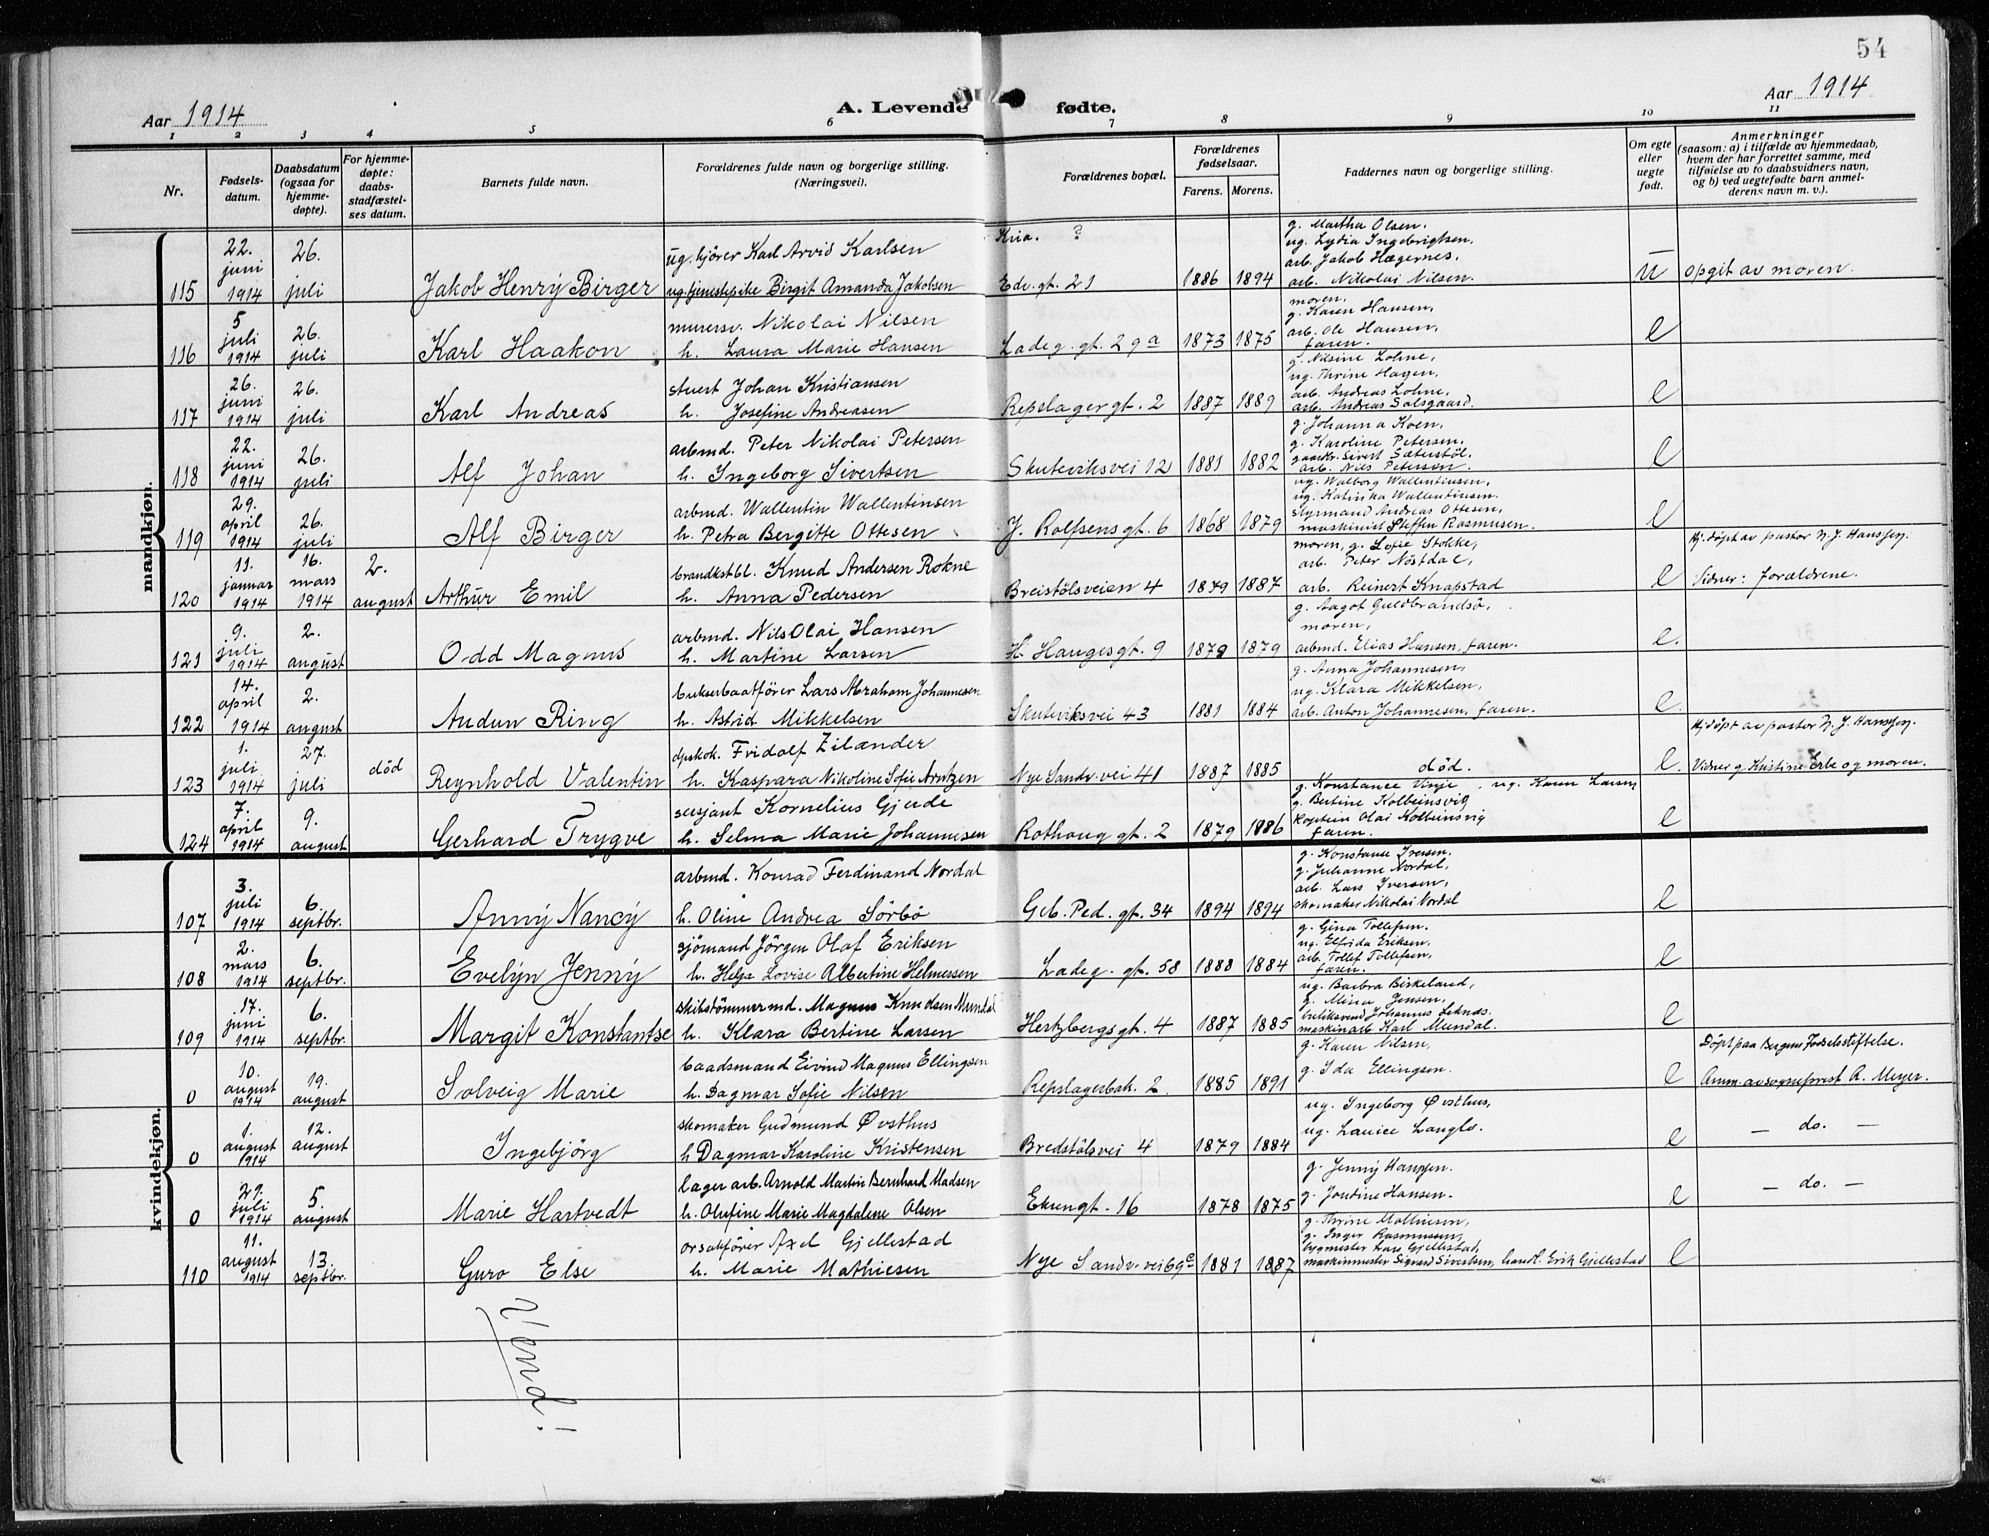 54
Aar 1914
A. Levende fødte.
Aar 1914
1 2 3 4 5 6 7 8 9 10 11
Nr.
Fødselsdatum.
Daabsdatum (ogsaa for hjemmedøpte).
For hjemmedøpte: daabsstadfæstelses datum.
Barnets fulde navn.
Forældrenes fulde navn og borgerlige stilling. (Næringsvei).
Forældrenes bopæl.
Forældrenes fødselsaar.
Farens. Morens.
Faddernes navn og borgerlige stilling.
Om egte eller uegte født.
Anmerkninger (saasom: a) i tilfælde av hjemmedaab, hvem der har forrettet samme, med tilføielse av to daabsvidners navn, og b) ved uegtefødte barn anmelderens navn m. v.).
mandkjøn.
115 22. juni 1914 26. juli Jakob Henry Birger
ug. kjører Karl Arvid Karlsen
ug. tjenestepike Birgit Amanda Jakobsen
Kria. ?
Edv. gt. 21 1886 1894
g. Martha Olsen,
ug. Lydia Ingebrigtsen,
arb. Jakob Hægernes,
arb. Nikolai Nilsen.
u opgit av moren.
116 5 juli 1914 26. juli Karl Haakon
murersv. Nikolai Nilsen
h. Laura Marie Hansen
Ladeg. gt. 29a 1873 1875
moren,
g. Karen Hansen,
arb. Ole Hansen,
faren.
e
117 26. juni 1914 26. juli Karl Andreas
stuert Johan Kristiansen
h. Josefine Andreasen
Repslagergt. 2 1887 1889
g. Nilsine Lohne,
ug. Thrine Hagen,
arb. Andreas Lohne,
arb. Andreas Solsgaard.
e
118 22. juni 1914 26. juli Alf Johan
arbmd. Peter Nikolai Petersen
h. Ingeborg Sivertsen
Skuteviksvei 12 1881 1882
g. Johanna Koen,
g. Karoline Petersen,
gaardbr. Sivert Sæterstöl,
arb. Nils Petersen.
e
119 29. april 1914 26. juli Alf Birger
arbmd. Wallentin Wallentinsen
h. Petra Bergitte Ottesen
J. Rolfsensgt. 6 1868 1879
ug. Walborg Wallentinsen,
ug. Katinka Wallentinsen.
styrmand Andreas Ottesen,
maskinist Steffen Rasmussen.
e
120 11. januar 1914 16. mars 1914 2. august Arthur Emil
brandkstbl. Knud Andersen Rokne
h. Anna Pedersen
Breistölsveien 4 1879 1887
moren, g. Sofie Stokke,
arb. Peter Nöstdal,
arb. Reinert Knapstad
e
Hj. døpt av pastor N. J. Hanssen.
Vidner: forældrene.
121 9. juli 1914 2. august Odd Magnus
arbmd. Nils Olai Hansen
h. Martine Larsen
H. Haugesgt. 9 1879 1879
g. Aagot Guldbrandsö,
moren,
arbmd. Elias Hansen, faren.
e.
122 14. april 1914 2. august Audun Ring
bukserbaatfører Lars Abraham Johannesen
h. Astrid Mikkelsen
Skuteviksvei 43 1881 1884
g. Anna Johannesen,
ug. Klara Mikkelsen,
arb. Anton Johannesen, faren.
e.
123 1. juli 1914 27. juli död Reynhold Valentin
dpskok. Fridolf Zilander
h. Kaspara Nikoline Sofie Arntzen
Nye Sandv. vei 41 1887 1885
död.
e.
Hj. døpt av pastor N. J. Hanssen.
Vidner g. Kristine Erle og moren.
124 7. april 1914 9. august Gerhard Trygve
sersjant Kornelius Gjerde
h. Selma Marie Johannesen
Rothaug gt. 2 1879 1886
g. Konstance Unje, ug. Karen Larsen
g. Bertine Kolbeinsvig
kaptein Olai Kolbeinsvig
faren.
e
kvindekjøn.
107 3. juli 1914 6. septbr. Anny Nancy
arbmd. Konrad Ferdinand Nordal
h. Oline Andrea Sörbö
Geb. Ped. gt. 34 1894 1894
g. Konstanse Iversen.
g. Julianne Nordal,
arb. Lars Iversen,
skomaker Nikolai Nordal
e
108 2. mars 1914 6. septbr. Evelyn Jenny
sjömand Jörgen Olaf Eriksen
h. Helga Lovise Albertine Helmersen
Ladeg. gt. 58 1888 1884
g. Gina Tollefsen.
ug. Elfrida Eriksen,
arb. Tollef Tollefsen,
faren.
e
109 17. juni 1914 6. septbr. Margit Konstantse
skibstömmermd. Magnus Knudsen Mundal
h. Klara Bertine Larsen
Hertzbergsgt. 4 1887 1885
ug. Barbra Birkeland,
g. Mina Jensen,
butiksvend Johannes Leknæs.
maskinarb. Karl Mundal.
e
0 10. august 1914 19. august Solveig Marie
baadsmand Eivind Magnus Ellingsen
h. Dagmar Sofie Nilsen
Repslagerbak. 2 1885 1891
g. Karen Nilsen,
g. Ida Ellingsen.
e
Døpt paa Bergens Fødselsstiftelse.
Anm. av sogneprest A. Meyer.
0 1. august 1914 12. august Ingebjörg
skomaker Gudmund Øvsthus
h. Dagmar Karoline Kristensen
Bredstölsvei 4 1879 1884
ug. Ingeborg Øvsthus,
ug. Langlo.
e — do. —
0 29. juli 1914 5. august Marie Hartvedt
lagerarb. Arnold Martin Bernhard Madsen
h. Olufine Marie Magdalene Olsen
Ekrengt. 16 1878 1875
g. Jenny Hanssen.
g. Jondine Hansen.
e — do. —
110 11. august 1914 13. septbr. Guro Else
Axel Gjellestad
h. Marie Mathiesen
Nye Sandv. vei 69c 1881 1887
g. Thrine Mathiesen,
g. Inger Rasmussen,
bygmester Lars Gjellestad,
maskinmester Sigvard Sivertsen, handl. Erik Gjellestad
e
Vend!